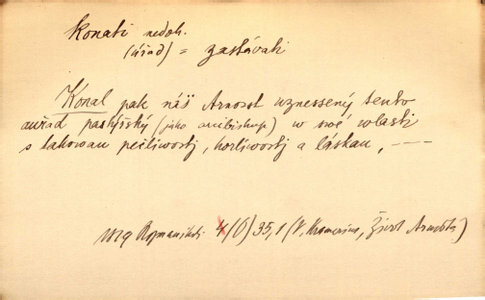 Konati nedok.
(úřad) = zastávati
Konal pak náš Arnosst wznessený tento
auřad pastýřský (jako arcibiskup) w swé wlasti
s takowau peiliwostj, horliwostj a láskau, ——
1819 Rozmanitosti 4/(6) 35,1 (V. Kramerius, Život Arnošta)